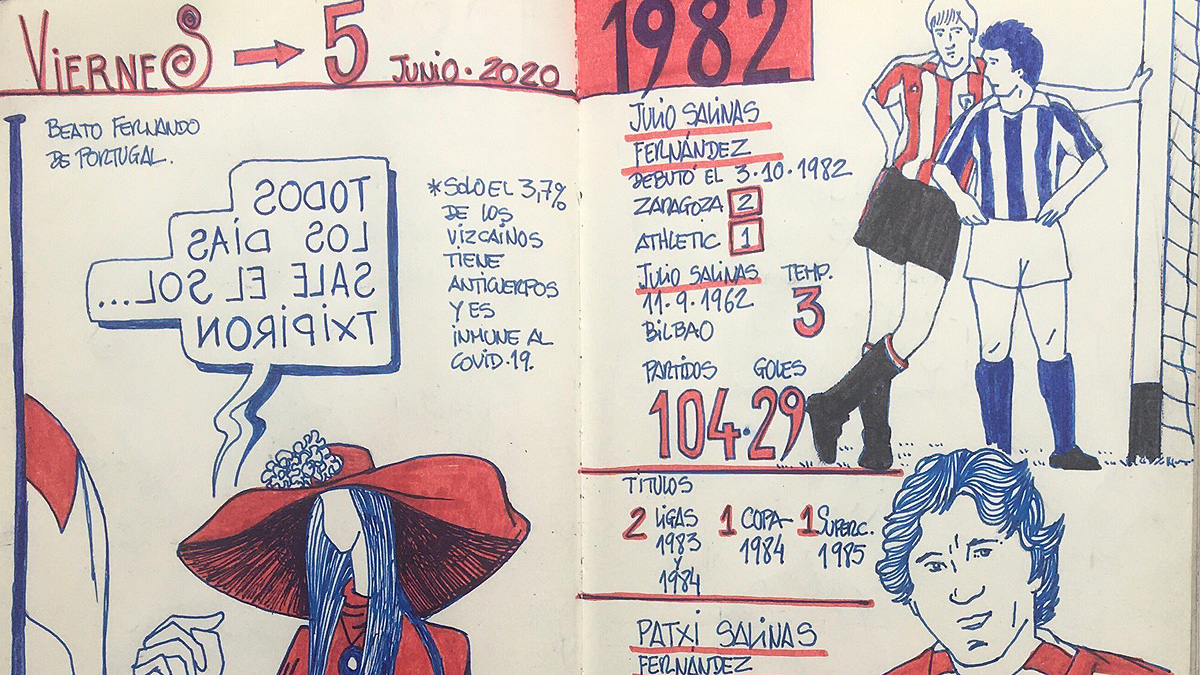 VIERNES → 5 JUNIO · 2020
BEATO FERNANDO
DE PORTUGAL.
TODOS
LOS DÍAS
SALE EL SOL...
TXIPIRON
*SOLO EL 3,7%
DE LOS
VIZCAINOS
TIENE
ANTICUERPOS
Y ES
INMUNE AL
COVID·19.
1982
JULIO SALINAS
FERNÁNDEZ
DEBUTÓ EL 3·10·1982
ZARAGOZA 2
ATHLETIC 1
JULIO SALINAS
11·9·1962
BILBAO
TEMP.
3
PARTIDOS GOLES
104·29
TÍTULOS
2 LIGAS
1983
Y
1984
1 COPA
1984
1 SUPERC.
1985
PATXI SALINAS
FERNÁNDEZ